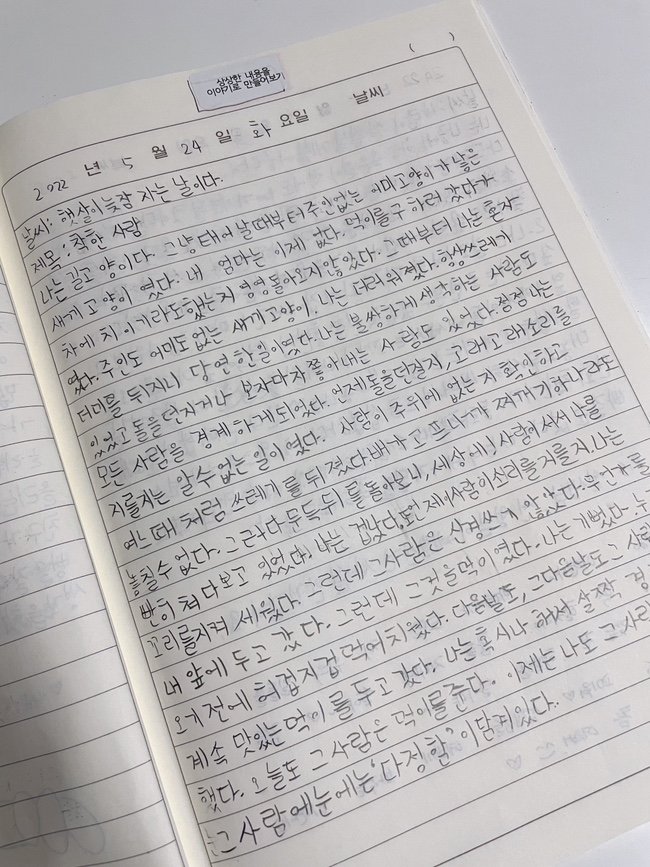 상상한 내용을
이야기로 만들어보기
( )
2022 년 5 월 24 일 화 요일 날씨
날씨: 햇살이 늦잠 자는 날이다.
제목: 착한 사람
나는 길고양이다. 그냥 태어날 때부터 주인없는 어미고양이가 낳은
새끼고양이 였다. 내 엄마는 이제 없다. 먹이를 구하러 갔다가
차에 치이기라도 했는지 영영 돌아오지 않았다. 그때부터 나는 혼자
였다. 주인도 어미도 없는 새끼고양이. 나는 더러워졌다. 항상 쓰레기
더미를 뒤지니 당연한 일이였다. 나를 불쌍하게 생각하는 사람도
있었고 돌을 던지거나 보자마자 쫓아내는 사람도 있었다. 점점 나는
모든 사람을 경계하게 되었다. 언제 돌을 던질지, 고래고래 소리를
지를지는 알 수 없는 일이였다. 사람이 주위에 없는지 확인하고
여느때 처럼 쓰레기를 뒤졌다. 배가 고프나 찌꺼기 하나라도
훔칠 수 없다. 그러다 문득 뒤를 돌아보니, 세상에, 사람이 서서 나를
빤히 쳐다보고 있었다. 나는 겁났다. 언제 이 사람이 소리를 지를지. 나는
꼬리를 치켜 세웠다. 그런데 그 사람은 신경쓰지 않았다. 무언가를
내 앞에 두고 갔다. 그런데 그것은 먹이였다. 나는 기뻤다.
오기 전에 허겁지겁 먹어치웠다. 다음날도, 그 다음날도 그
계속 맛있는 먹이를 두고 갔다. 나는 혹시나 해서 살짝
했다. 오늘도 그 사람은 먹이를 준다. 이제는 나도 그
그 사람에 눈에는 '다정함' 이 담겨있다.